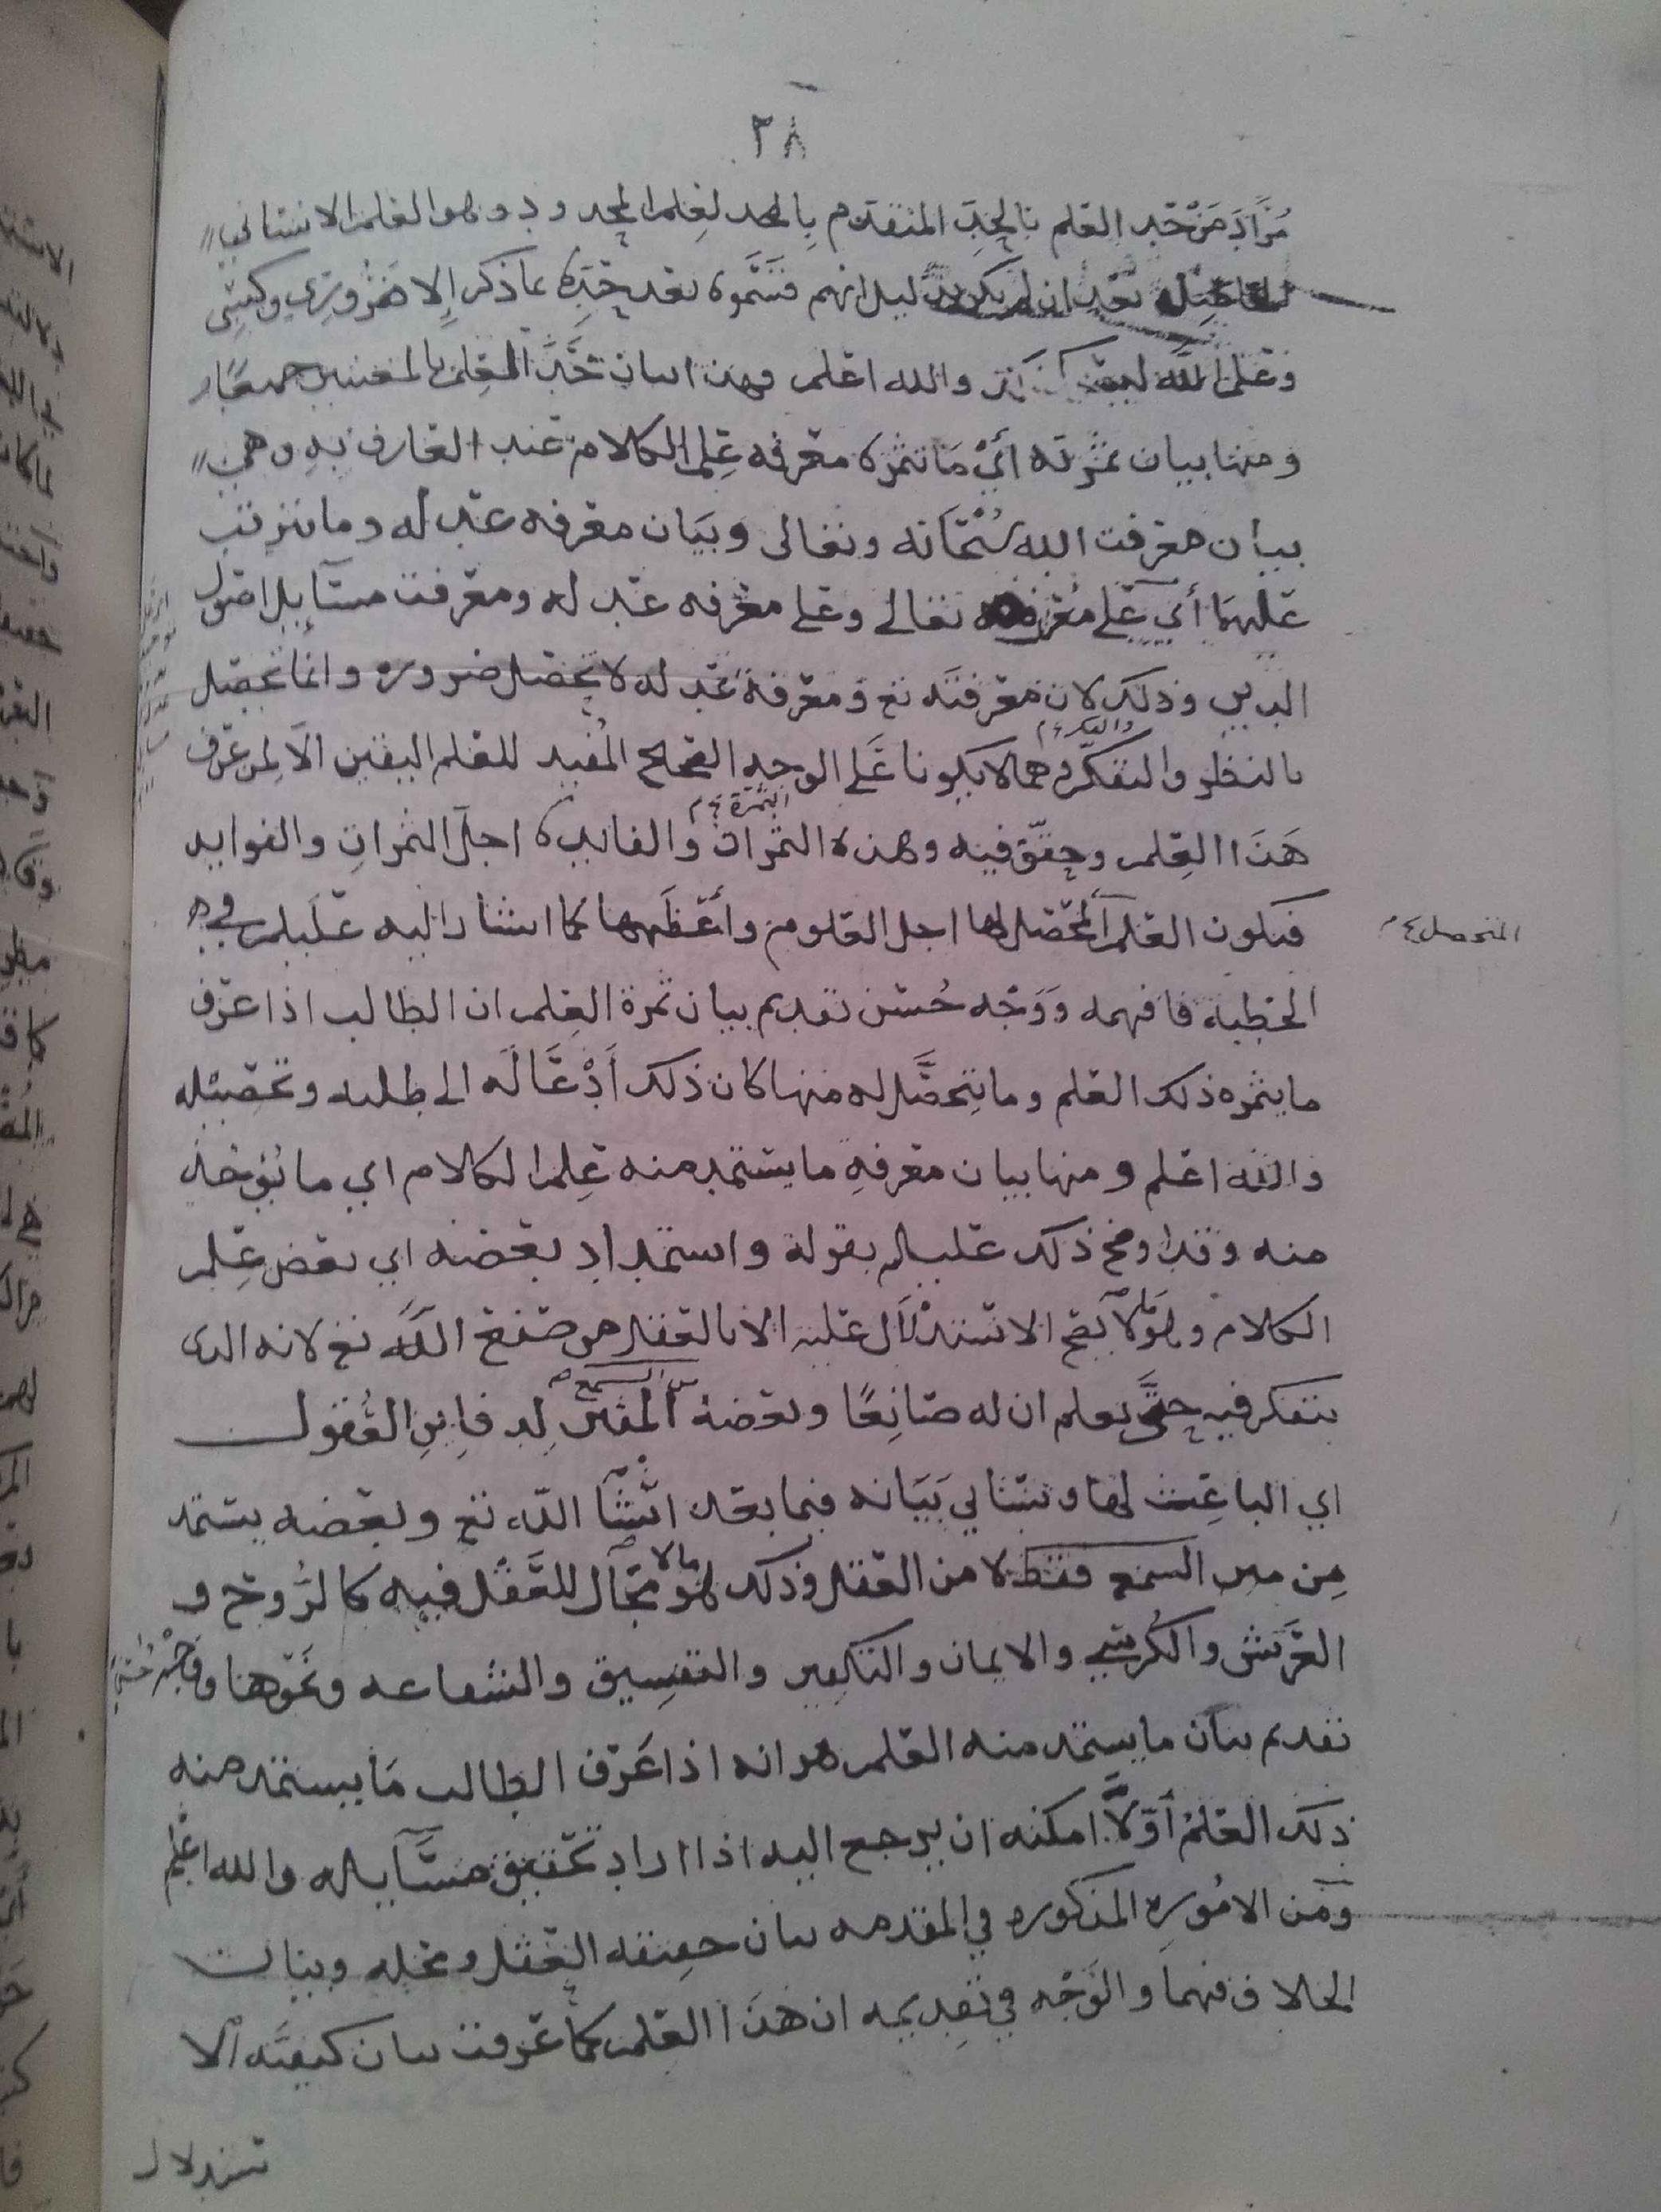 ٢٨
مُرَادَ مَنْ حَد العلم بالحَدِّ المتقدم بالحد لعِلم المحدود وهو العلم الانساني
بعد ان لم يكن بدليل انهم قسَّموه بعد حَدِّه بما ذكر إلا ضرُوري وكسبي
وعلم الله ليس والله اعلم وهذا بيان حَدَّ العِلم بالمعنيين جميعًا
ومنها بيان ثمرته أيْ مَا تثمره معرفه عِلم الكلام عند العارف بهِ وهي
بيان معرفت الله سُبْحَانه وتعالى وبَيَان معرفه عدله وما يترتب
عليهمَا أي عَلى مَعْرفته تعالى وعلى معرفه عدله ومعرفت مسَآيل اصول
الدين وذلك لان مَعْرفتَه تع ومعرفة عَدله لا تحصل ضروره وانما تحصل
بالنظر والتفكّر وهما لا يكونا عَلى الوجه الصحيح المُفيد للعلم اليقين الَّا لِمن عرف
والفكر
هَذَا العِلم وحقّق فيه وهذه الثمرات والفايده اجل الثمراتِ والفوايد
الثمرة
فيكون العلم المحصِّل لها اجل العلوم وأعْظَمها كما اشار اليه علَيلم في
المتحصل
الخطبة فافهمه وَوَجْه حُسْن تقديم بيان ثمرة العِلم ان الطالب اذا عرف
ما يثمره ذلك العلم وما يتحصَّل له منها كان ذلك أَدْعَا لَه الى طلبه وتحصيله
والله اعلم ومنها بيان معرفهِ ما يستمد منه عِلم الكلام اي ما يُؤخذ
منه وقد اوضح ذلك عليلم بقوله واستمداد بعضه اي بعض عِلم
الكلام وهو مَا لا يصح الاسْتدْلَال عليه الا بالعقل من صنع اللَّه تع لانه الذى
يتفكر فيه حتَّى يعلم ان له صَانِعًا وبعضهُ المثير لِدفاين العُقول
من السمع
اي الباعِث لها وسَيَاتي بَيَانه فيما بعد انْشَا اللَّه تع وبعضه يستمد
مِن مين السمع فقط لا من العقل وذلك هُو مالا مَجَال للعَقل فيه كالرُّوح و
العَرش والكُرسِي والايمان والتكفير والتفسِيق والشفاعه ونَحوها ووَجْه حُسْن
تقديم بيان ما يستمد منه العلم هو انه اذا عَرَف الطالب مَا يستمد منه
ذلك العلمُ أوّلاً امكنه ان يرجع اليه اذا اراد تحقيق مسَآيله والله اعْلم
ومَن الامُورِه المذكوره في المقدمه بيان حقيقه العَقل ومحله وبيان
الخلاف فيهما والوَجْه في تقدِيمه ان هذَا العلم كما عَرفت بيان كيفيَّه الا
ستدلال